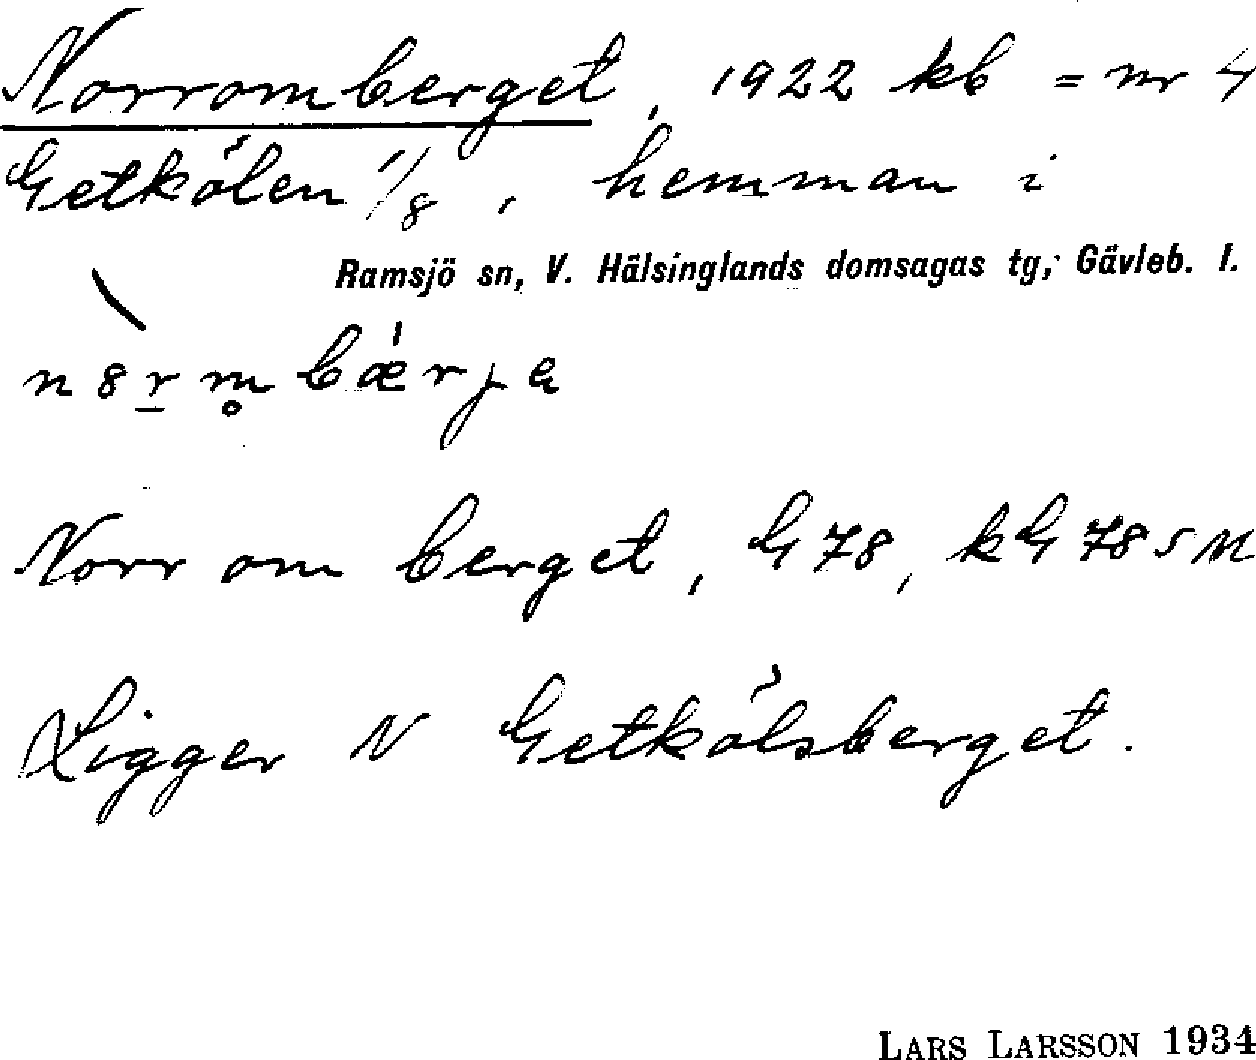 Norromberget, 1922 kb = nr 4
Getkölen 1/8, hemman i
Ramsjö sn, V. Hälsinglands domsagas tg, Gävleb. l.
Norr om berget, G 78, kG 78 SM
Ligger N Getkölsberget.
LARS LARSSON 1934